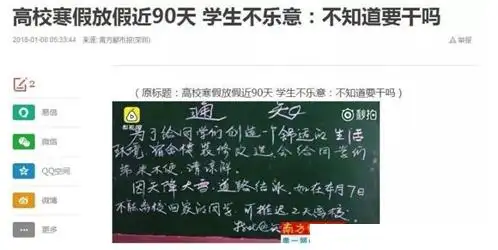 高校寒假放假近90天 学生不乐意：不知道要干吗
2018-01-08 05:33:44 来源：南方都市报(深圳)
举报
2
( 原标题：高校寒假放假近90天 学生不乐意：不知道要干吗 )
易信
微信
QQ空间
微博
秒拍
通知
为了给同学们创造一个舒适的生活
环境，宿舍楼装修改造，会给同学们
带来不便，请谅解。
因天降大雪，道路结冰，如在1月7日
不能离校回家的同学，可推迟2天离校。
南方